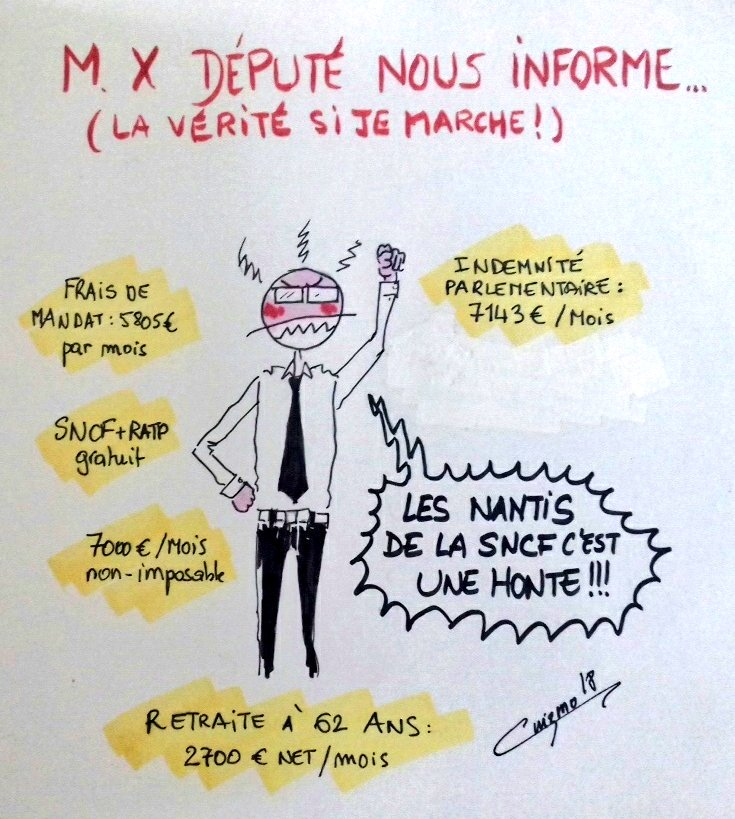 M. X DÉPUTÉ NOUS INFORME...
(LA VÉRITÉ SI JE MARCHE!)
FRAIS DE
MANDAT: 5805€
par mois
INDEMNITÉ
PARLEMENTAIRE:
7143 € / Mois
SNCF+RATP
gratuit
LES NANTIS
DE LA SNCF C'EST
UNE HONTE!!!
7000 € / Mois
non-imposable
18
RETRAITE À 62 ANS:
2700 € NET/mois